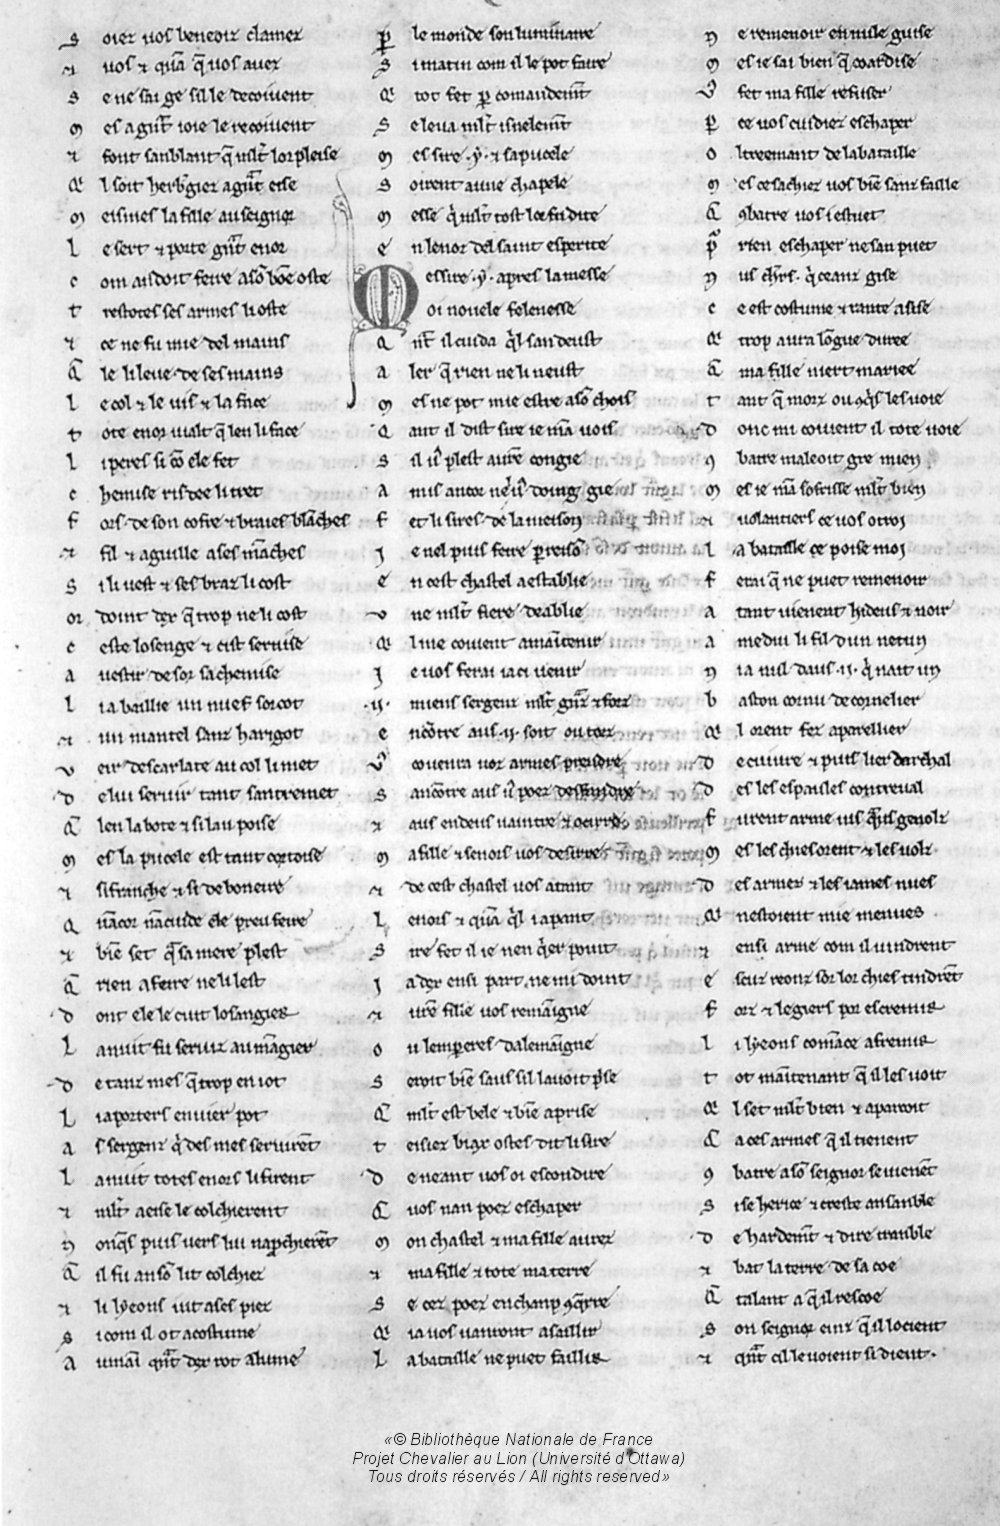 S oiez vos beneoiz clamez
⁊ vos ⁊ q̃nq̃ q̃ vos avez
S e ne sai ge sil le decoivent
M es a gñt ioie le recoivent
⁊ font sanblant q̃ mlt̃ lor pleise
Q il soit herbgier a gñt eise
M eismes la fille au seignor
L e sert ⁊ porte gñt enor
C om an doit feire a sõ boẽ oste
T restotes ses armes li oste
⁊ ce ne fu mie del mains
Q̃ le li leve de ses mains
L e col ⁊ le vis ⁊ la face
T ote enor vialt q̃ len li face
L i peres si cõ ele fet
C hemise ridee li tret
F ors de son cofre ⁊ braies blãches
⁊ fil ⁊ aguille a ses mãches
S i li vest ⁊ ses braz li cost
Or doint dex q̃ trop ne li cost
C este losenge ⁊ cist servise
A vestir desor sa chemise
L i a baillie un nuef sorcot
⁊ un mantel sanz harigot
V eir descarlate au col li met
D e lui servir tant santremet
Q̃ len la bote ⁊ si lan poise
M es la pucele est tant cortoise
⁊ si franche ⁊ si de boneire
Q nãcor nã cuide ele preu feire
⁊ biẽ set q̃ sa mere plest
Q̃ rien a feire ne li lest
D ont ele le cuit losangier
L a nuit fu serviz au mãgier
D e tanz mes q̃ trop en i ot
L i aporters enuier pot
A s sergenz q̃ des mes servirẽt
L a nuit totes enors li firent
⁊ mlt̃ a eise le colchierent
N onq̃s puis vers lui naprchierẽt
Q̃ il fu an sõ lit colchiez
⁊ li lyeons iut a ses piez
S i com il ot acostume
A u main qñt dex rot alume
P le monde son luminaire
S i matin com il le pot faire
Q tot fet p comandemt̃
S e leva mlt̃ isnelemt̃
M es sire .y. ⁊ sa pucele
S oirent a une chapele
M esse q̃ mlt̃ tost lor fu dite
E n lenor del saint esperite
M essire .y. apres la messe
Oi novele felenesse
Q nt̃ il cuida q̃l san deust
A ler q̃ rien ne li neust
M es ne pot mie estre a sõ chois
Q ant il dist sire ie mã vois
S il vos plest avec congie
A mis ancor nel vos doing gie
F et li sires de la meison
J e nel puis feire p reisõ
E n cest chastel a establie
U ne mlt̃ fiere deablie
Q l me covient a maintenir
J e vos ferai ia ci venir
.ij. miens sergenz mlt̃ gñz ⁊ forz
E ncõtre aus .ij. soit ou torz
Vos covenra voz armes prendre
S ancõtre aus vos poez desfandre
⁊ aus endeus vaintre ⁊ ocirre
M a fille a seignor vos desirre
⁊ de cest chastel vos atant
L enors ⁊ q̃nq̃ q̃l i apant
S ire fet il ie nen q̃er point
J a dex ensi part ne mi doint
⁊ vrẽ fille vos remaigne
O u lemperes dalemaigne
S eroit biẽ saus sil lavoit pse
Q̃ mlt̃ est bele ⁊ biẽ aprise
T eisiez biax ostes dit li sire
D e neant vos oi escondire
Q̃ vos nan poez eschaper
M on chastel ⁊ ma fille a avoir
⁊ ma fille ⁊ tote ma terre
S e cez poez en chanp 9q̃rre
Q ia vos vanront asaillir
L a bataille ne puet faillir
N e remenoir en nule guise
M es ie sai bien q̃ coardise
Vos fet ma fille refuser
P ce vos cuidiez eschaper
O ltreemant de la bataille
M es ce sachiez vos biẽ sanz faille
Q̃ 9batre vos i estuet
P rien eschaper ne san puet
N us chrs. q̃ ceanz gise
C e est costume ⁊ rante asise
Q trop avra lõgue duree
Q̃ ma fille niert mariee
T ant q̃ morz ou 9q̃s les voie
D onc mi covient il tote voie
9 batre maleoit gre mien
M es ie mã sofrisse mlt̃ bien
⁊ volantiers ce vos otroi
L a bataille ce poise moi
F erai q̃ ne puet remenoir
A tant vienent hideus ⁊ noir
A medui li fil dun netun
N i a nul daus .ij. q̃ nait un
B aston cornu de cornelier
Q l orent fez apareillier
D e cuivre ⁊ puis lier darchal
D es les espaules contreval
F urent arme iusq̃s genolz
M es les chies orent ⁊ les volz
D esarmez ⁊ les iames nues
Q nestoient mie menues
⁊ ensi arme com il vindrent
E scuz reonz sor lor chies tindrẽt
F orz ⁊ legiers por escremir
L i lyeons comãce a fremir
T ot maintenant q̃ il les voit
Q l set mlt̃ bien ⁊ aparcoit
Q̃ a ces armes q̃ il tienent
9 batre a sõ seignor se vienẽt
S i se herice ⁊ creste ansanble
D e hardemt̃ ⁊ dire tranble
⁊ bat la terre de sa coe
Q̃ talant a q̃ il rescoe
S on seignor einz q̃ il locient
⁊ qñt cil le voient si dient.
«© Bibliothèque Nationale de France
Projet Chevalier au Lion (Université d'Ottawa)
Tous droits réservés / All rights reserved»